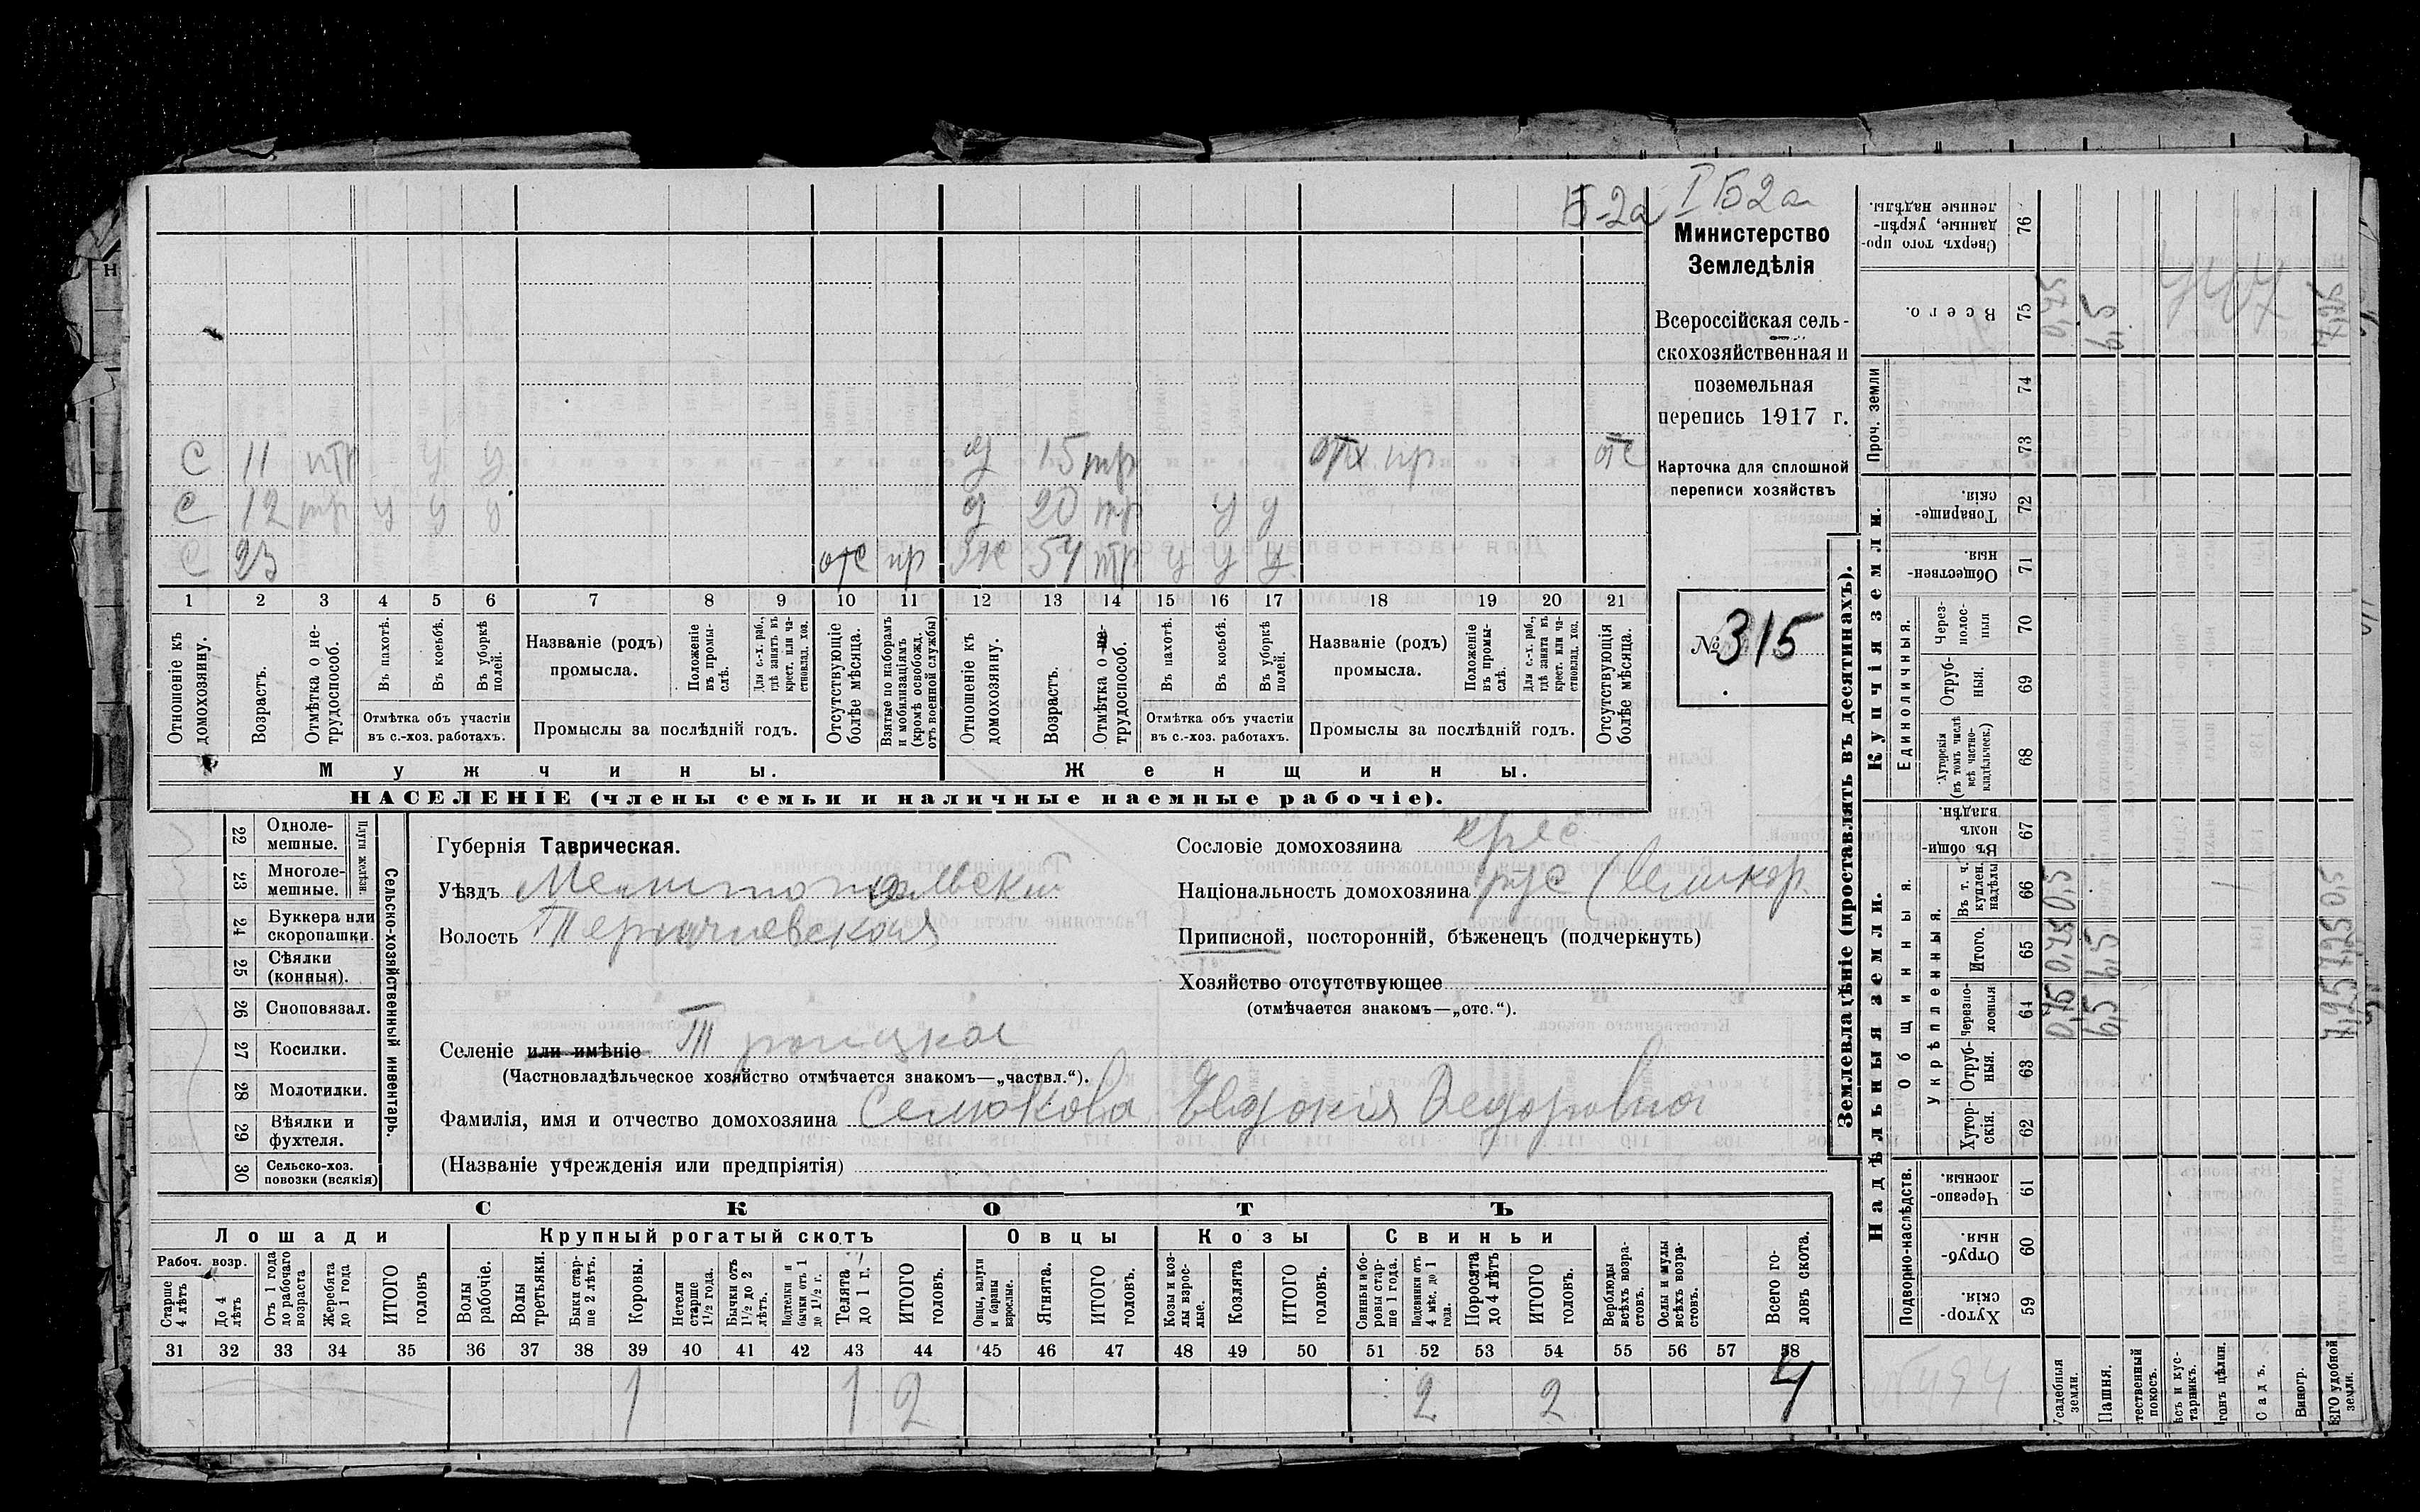 Б-2а
I Б2а
Министерство
Земледѣлія
Всероссійская сель-
скохозяйственная и
поземельная
перепись 1917 г.
Карточка для сплошной
переписи хозяйствъ
№ 315
С 11 у у д 15 тр отх пр отс
С 12 у у у д 20 у у
С 23 отс пр 54 у у у
1 2 3 4 5 6 7 8 9 10 11 12 13 14 15 16 17 18 19 20 21
Отношеніе къ домохозяину.
Возрастъ.
Отмѣтка о не-трудоспособ.
Въ пахотѣ.
Въ косьбѣ.
Въ уборкѣ полей.
Отмѣтка объ участіи
въ с.-хоз. работахъ.
Названіе (родъ)
промысла.
Положеніе въ промы-слѣ.
Для с.-х. раб., гдѣ занятъ въ крест. или ча-стновлад. хоз.
Промыслы за послѣдній годъ.
Отсутствующіе болѣе мѣсяца.
Взятые по наборамъ и мобилизаціямъ (кромѣ освобожд. отъ военной службы)
Отношеніе къ домохозяину.
Возрастъ.
Отмѣтка о не-трудоспособ.
Въ пахотѣ.
Въ косьбѣ.
Въ уборкѣ полей.
Отмѣтка объ участіи
въ с.-хоз. работахъ.
Названіе (родъ)
промысла.
Положеніе въ промы-слѣ.
Для с.-х. раб., гдѣ занятъ въ крест. или ча-стновлад. хоз.
Промыслы за послѣдній годъ.
Отсутствующія болѣе мѣсяца.
Мужчины.
Женщины.
НАСЕЛЕНІЕ (члены семьи и наличные наемные рабочіе).
Сельско-хозяйственный инвентарь.
Плуги желѣзн.
22 Одноле-мешные.
23 Многоле-мешные.
24 Буккера или скоропашки.
25 Сѣялки (конныя).
26 Сноповязал.
27 Косилки.
28 Молотилки.
29 Вѣялки и фухтеля.
30 Сельско-хоз. повозки (всякія)
Губернія Таврическая.
Уѣздъ Мелитопольскій
Волость Терпачиевская
Селеніе или имѣніе Троицкое
(Частновладѣльческое хозяйство отмѣчается знакомъ—„частвл.“).
Фамилія, имя и отчество домохозяина Семокова Евдокія Федоровна
(Названіе учрежденія или предпріятія)
Сословіе домохозяина крес.
Національность домохозяина рус (великор.
Приписной, посторонній, бѣженецъ (подчеркнуть)
Хозяйство отсутствующее
(отмѣчается знакомъ—„отс.“).
СКОТЪ
Лошади
Крупный рогатый скотъ
Овцы
Козы
Свиньи
Рабоч. возр.
Старше 4 лѣтъ
До 4 лѣтъ
Отъ 1 года до рабочаго возраста
Жеребята до 1 года
ИТОГО головъ
Волы рабочіе.
Волы третьяки.
Быки стар-ше 2 лѣтъ.
Коровы.
Нетели старше 1½ года.
Бычки отъ 1½ до 2 лѣтъ.
Подтелки и бычки отъ 1 до 1½ г.
Телята до 1 г.
ИТОГО головъ.
Овцы, валухи и бараны взрослые.
Ягнята.
ИТОГО головъ.
Козы и коз-лы взрос-лые.
Козлята
ИТОГО головъ.
Свиньи и бо-ровы стар-ше 1 года.
Подсвинки отъ 4 мѣс. до 1 года.
Поросята до 4 лѣтъ
ИТОГО головъ.
Верблюды всѣхъ возра-стовъ.
Ослы и мулы всѣхъ возра-стовъ.
Всего го-ловъ скота.
31 32 33 34 35 36 37 38 39 40 41 42 43 44 45 46 47 48 49 50 51 52 53 54 55 56 57 58
1 1 2 2 2 4
Землевладѣніе (проставлять въ десятинахъ).
Надѣльныя земли.
Купчія земли.
Проч. земли
Подворно-наслѣдств.
Общинныя.
укрѣпленныя.
Единоличныя.
Хутор-скія. 59
Отруб-ныя. 60
Черезпо-лосныя. 61
Хутор-скія. 62
Отруб-ныя. 63
Черезпо-лосныя 64
Итого. 65
Въ т. ч. куплен. надѣлы 66
Въ общин-номъ владѣн. 67
Хуторскія (въ томъ числѣ всѣ частно-владѣльческ.) 68
Отруб-ныя. 69
Черезъ-полос-ныя 70
Обществен-ныя. 71
Товарище-скія. 72
73
74
Всего. 75
Сверхъ того про-данные, укрѣп-ленные надѣлы. 76
Усадебныя земли. 0,75 0,75 0,5 0,75
Пашня. 6,5 6,5 6,5
тественный покосъ.
ѣсъ и кус-тарникъ.
гонъ цѣлин.
Садъ.
Виногр.
ЕГО удобной земли. 7,25 7,25 0,5 7,25